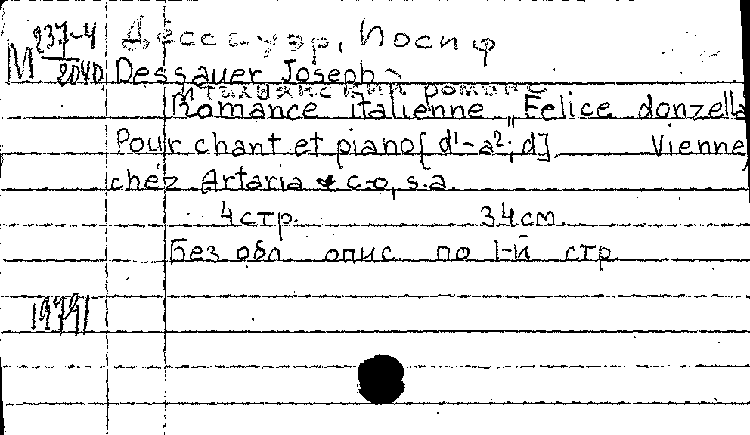 М 237-4 Дессауэр, Иосиф
2040 Dessauer Joseph
Итальянский романс
Romance italienne „Felice donzella"
Pour chant et piano [d¹-a²; d]. Vienne,
chez Artaria & c-o, s.a.
4 стр. 34 см.
Без обл. опис по 1-й стр
19791